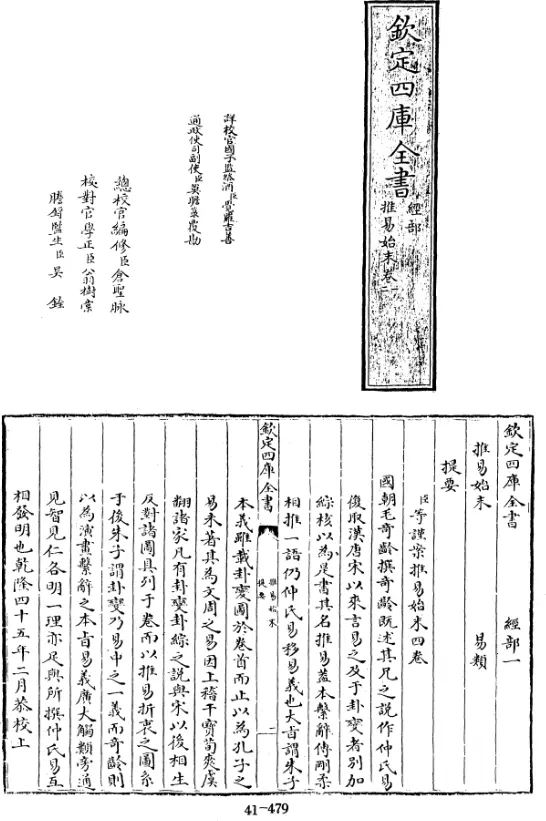 欽定四庫全書 經部 推易始末卷一二
詳校官國子監祭酒臣覺羅吉善
通政使司副使臣莫瞻菉覆勘
總校官編修臣倉聖脉
校對官學正臣翁樹棠
謄錄監生臣吳鍾
欽定四庫全書 經部一
推易始末 易類
提要
臣等謹案推易始末四卷
國朝毛奇齡撰奇齡既述其兄之說作仲氏易
復取漢唐宋以來言易之及于卦變者別加
綜核以為是書其名推易蓋本繫辭傳剛柔
相推一語仍仲氏易移易義也大㫖謂朱子
欽定四庫全書 推易始末 提要 二
本義雖載卦變圖於卷首而止以為孔子之
易未著其為文周之易因上稽干寶荀爽虞
翻諸家凡有卦變卦綜之說與宋以後相生
反對諸圖具列于卷而以推易折衷之圖系
于後朱子謂卦變乃易中之一義而奇齡則
以為演畫繫辭之本㫖易義廣大觸類旁通
見智見仁各明一理亦足與所撰仲氏易互
相發明也乾隆四十五年二月恭校上
41-479